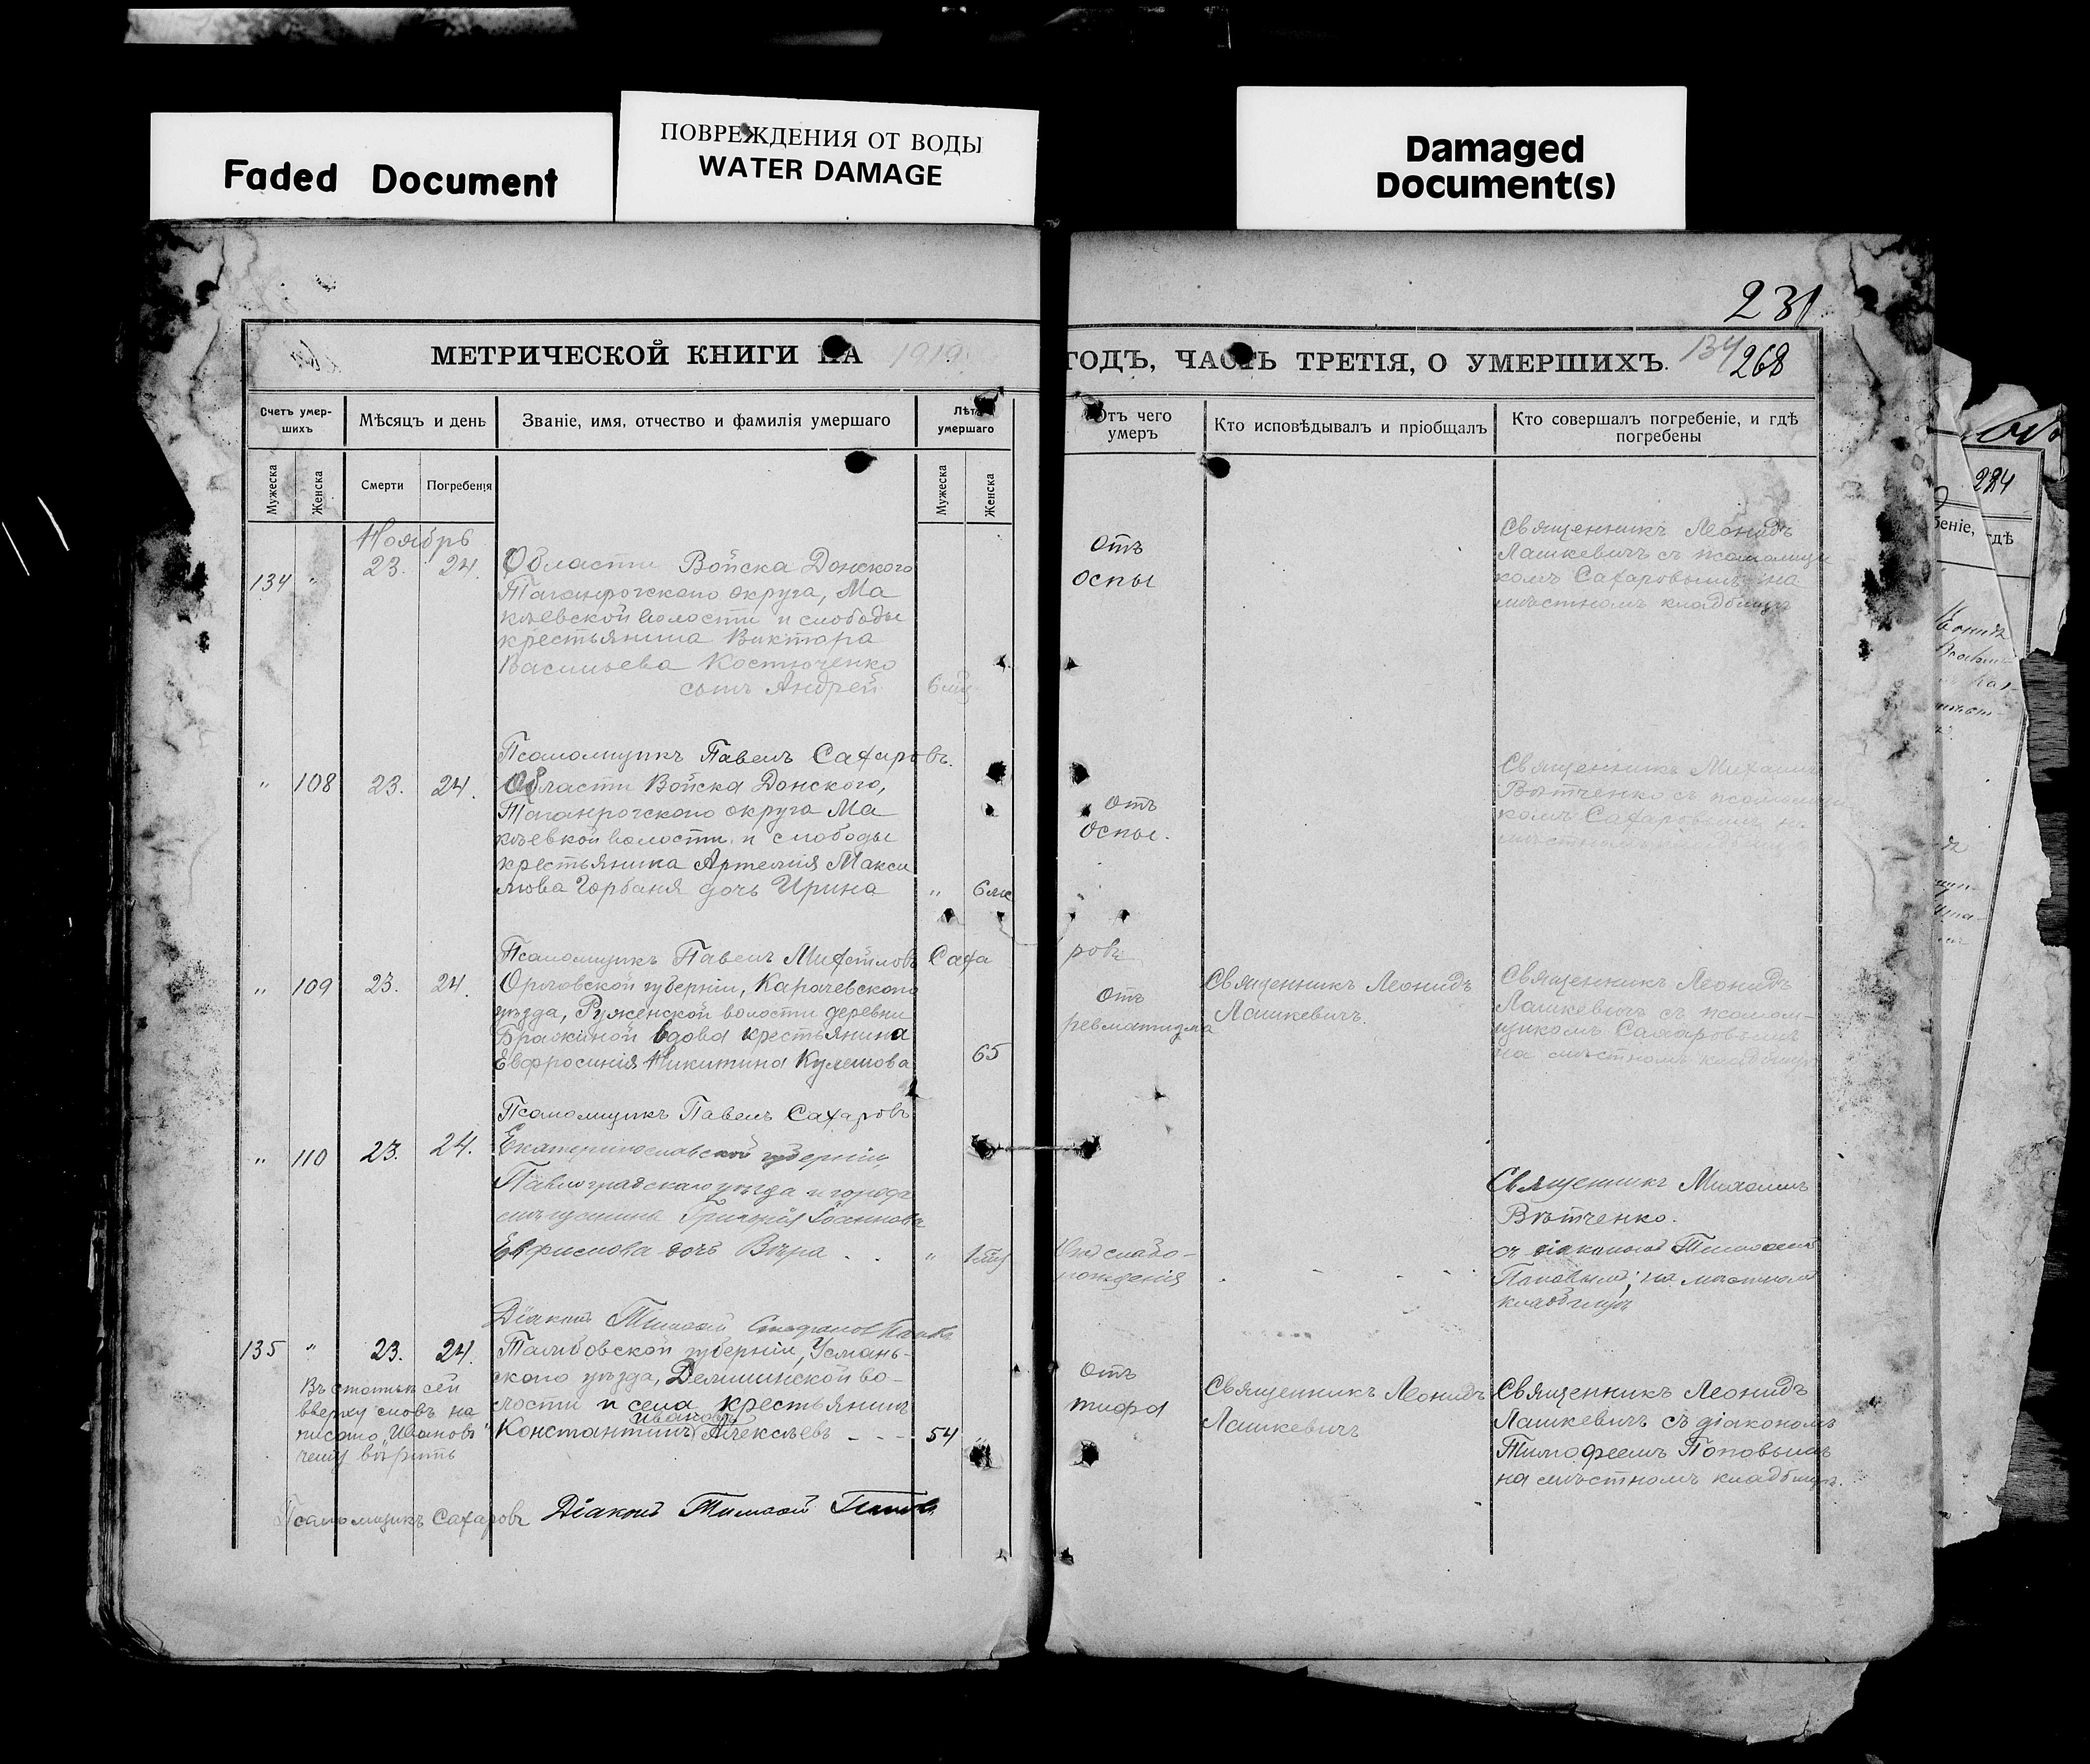 Faded Document
ПОВРЕЖДЕНИЯ ОТ ВОДЫ
WATER DAMAGE
Damaged
Document(s)
231
МЕТРИЧЕСКОЙ КНИГИ НА 1919
ГОДЪ, ЧАСТЬ ТРЕТІЯ, О УМЕРШИХЪ. 134 268
Счетъ умер-
шихъ
Мѣсяцъ и день
Званіе, имя, отчество и фамилія умершаго
Лѣта
умершаго
Отъ чего
умеръ
Кто исповѣдывалъ и пріобщалъ
Кто совершалъ погребеніе, и гдѣ
погребены
Мужеска
Женска
Смерти
Погребенія
Мужеска
Женска
Ноябрь
134 " 23. 24.
Области Войска Донского
Таганрогского округа, Ма
кѣевской волости и слободы
крестьянина Виктора
Васильева Костюченко
сынъ Андрей
отъ
оспы
Священникъ Леонидъ
Лашкевичъ съ псаломщи
комъ Сахаровымъ на
мѣстномъ кладбищѣ
Псаломщикъ Павелъ Сахаровъ.
" 108 23. 24.
Области Войска Донского,
Таганрогского округа Ма
кѣевкой волости и слободы
крестьянина Артемия Макси
мова Горбаня дочь Ирина " 6 мс
отъ
оспы.
Священникъ Михаилъ
Вѣтченко съ псаломщи
комъ Сахаровымъ
Псаломщикъ Павелъ Михайловъ Саха
ровъ
" 109 23. 24.
Орловской губерніи, Карачевского
уѣзда, Руженской волости деревни
вдова крестьянина
Евфросинія Никитина Кулешова 65
отъ
ревматизма
Священникъ Леонидъ
Лашкевичъ.
Священникъ Леонидъ
Лашкевичъ съ псалом-
щикомъ Сахаровымъ
на мѣстномъ кладбищѣ
Псаломщикъ Павелъ Сахаровъ
" 110 23. 24.
Екатеринославской губерніи,
Павлоградскаго уѣзда и города
мѣщанина Григорія Іоаннова
дочь Вѣра "
Священникъ Михаилъ
Вѣтченко.
съ діакономъ
Поповымъ, на мѣстномъ
кладбищѣ
Діаконъ Тимофей Стефановъ Поповъ
135 " 23. 24.
Тамбовской губерніи, Усмань-
ского уѣзда, Демшинской во-
лости и села крестьянинъ
Ивановъ
Константинъ Алексѣевъ - - - 54
отъ
тифа
Священникъ Леонидъ
Лашкевичъ
Священникъ Леонидъ
Лашкевичъ съ діакономъ
Тимофеемъ Поповымъ
на мѣстномъ кладбищѣ.
Въ статьѣ сей
вверху словъ на
писано „Ивановъ"
чему вѣрить
Псаломщикъ Сахаровъ Діаконъ Тимофей Поповъ
224